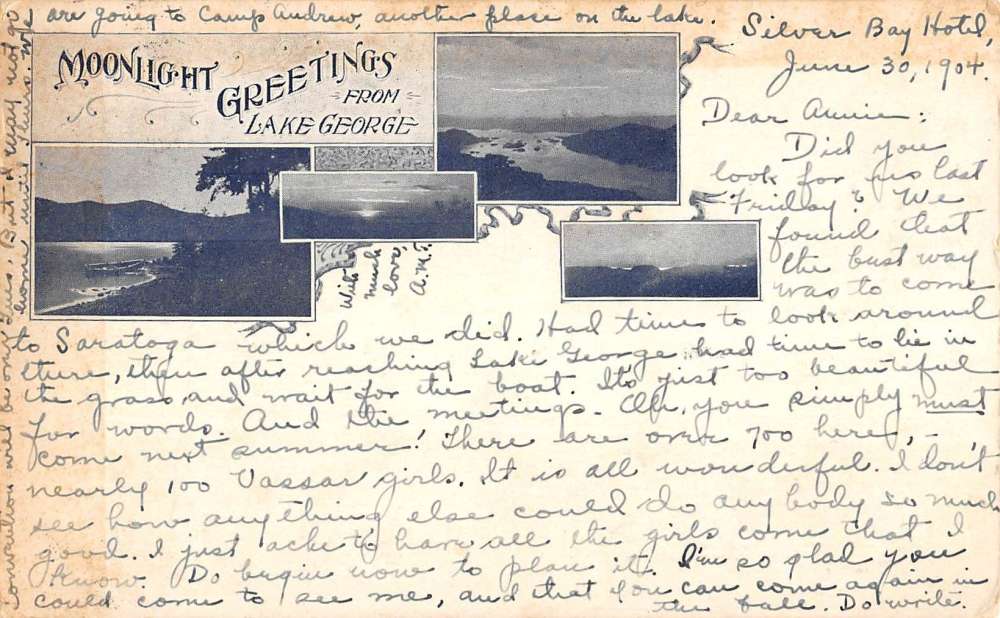 MOONLIGHT
GREETINGS
FROM
LAKE GEORGE
Silver Bay Hotel,
June 30, 1904.
Dear Annie:
Did you
look for us last
Friday? We
found that
the best way
was to come
to Saratoga which we did. Had time to look around
there, then after reaching Lake George had time to lie in
the grass and wait for the boat. It's just too beautiful
for words. And the meetings. Oh, you simply must
come next summer! There are over 700 here, -
nearly 100 Vassar girls. It is all wonderful. I don't
see how anything else could do any body so much
good. I just ache to have all the girls come that I
know. Do begin now to plan it. I'm so glad you
could come to see me, and that you can come again in
the fall. Do write.
With
much
love,
A.M.T.
Convention will be over Tues. But I may not go
home until Thurs. We
are going to Camp Andrew, another place on the lake.